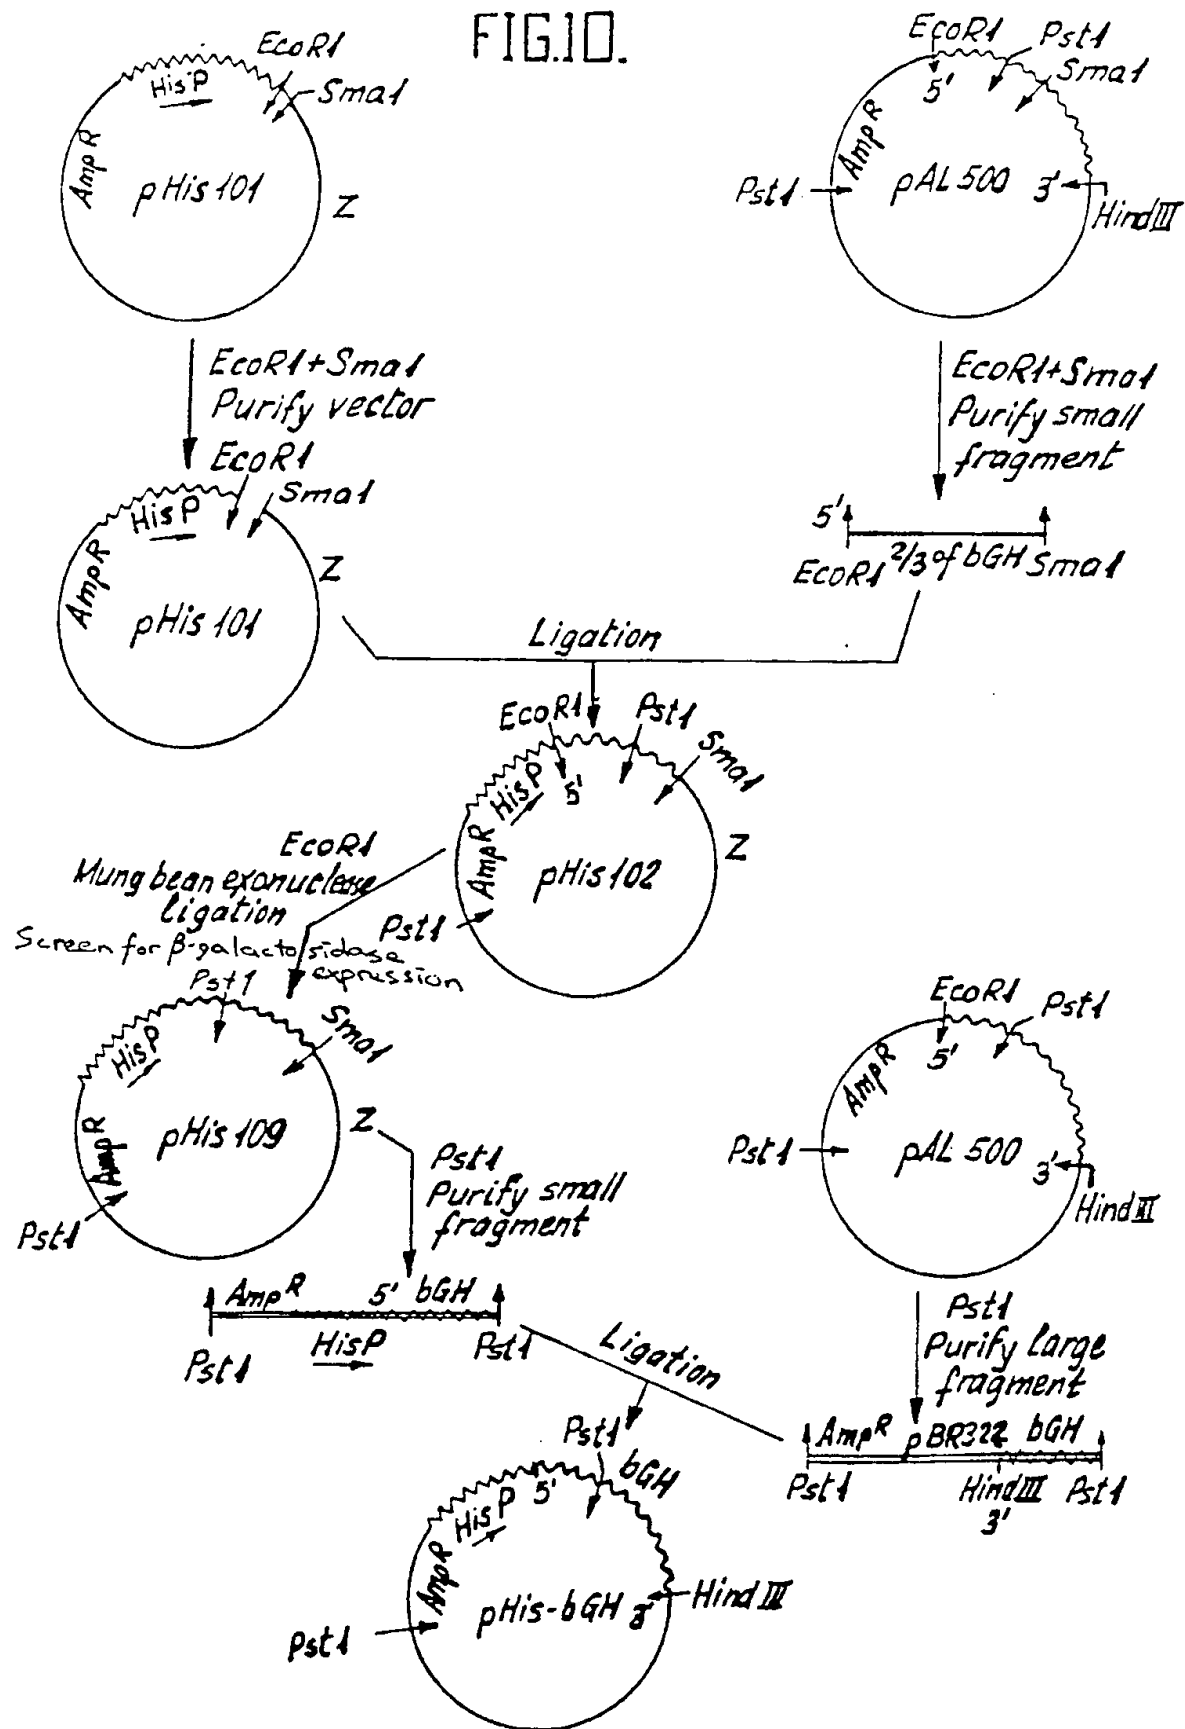 FIG.10.
EcoR1
HisP
Sma1
AmpR
pHis 101
Z
EcoR1
Pst1
Sma1
5'
AmpR
Pst1
pAL 500
3'
Hind III
EcoR1+Sma1
Purify vector
EcoR1+Sma1
Purify small
fragment
EcoR1
Sma1
HisP
AmpR
Z
pHis 101
5'
EcoR1 2/3 of bGH Sma1
Ligation
EcoR1
Pst1
Sma1
HisP
5'
AmpR
Z
pHis 102
Pst1
EcoR1
Mung bean exonuclease
ligation
Screen for β-galactosidase
expression
Pst1
Sma1
HisP
AmpR
pHis 109
Z
Pst1
Pst1
Purify small
fragment
EcoR1
Pst1
5'
AmpR
Pst1
pAL 500
3'
Hind III
AmpR 5' bGH
Pst1 HisP Pst1
Ligation
Pst1
Purify large
fragment
AmpR pBR322 bGH
Pst1 Hind III Pst1
3'
Pst1
bGH
HisP 5'
AmpR
pHis-bGH 3'
Hind III
Pst1